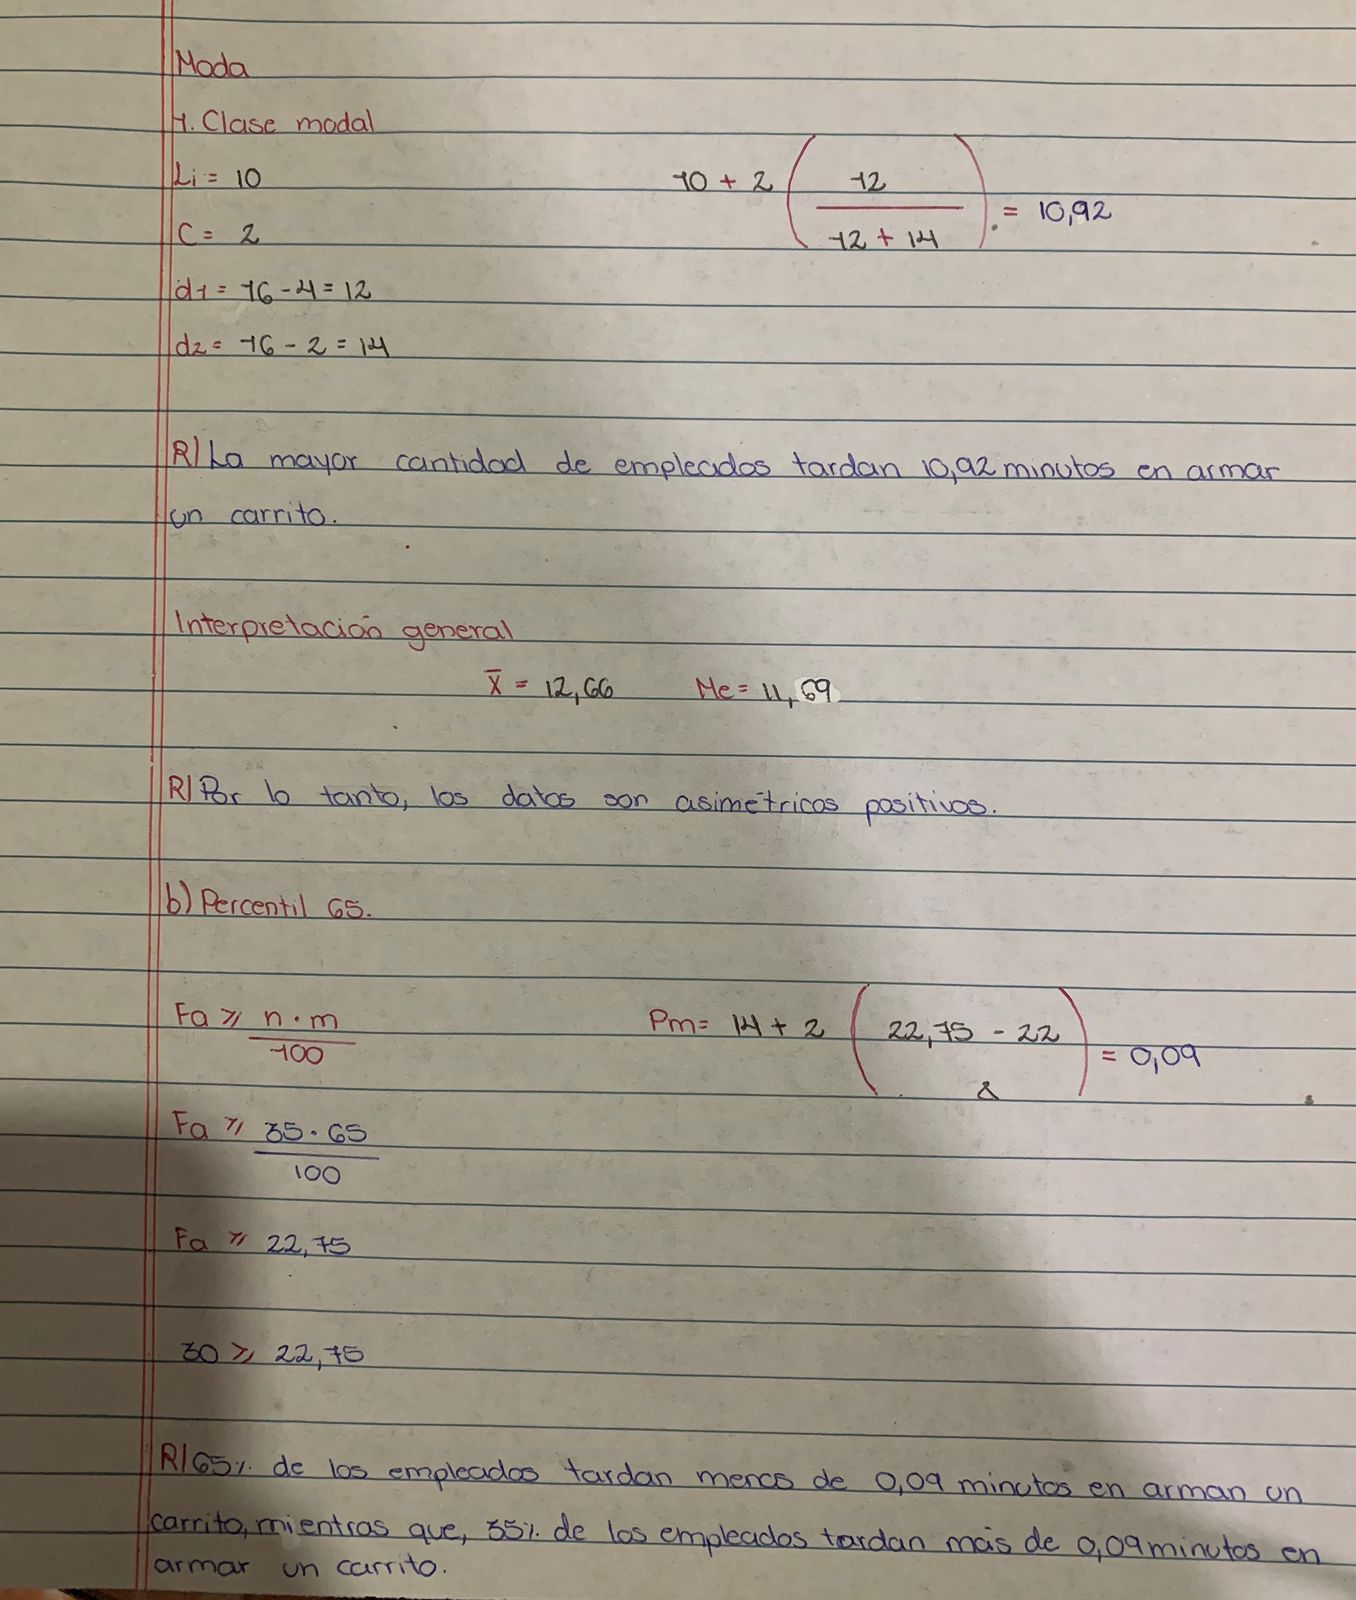 Moda
1. Clase modal
Li = 10
10 + 2 ( 12 / 12 + 14 ) = 10,92
C = 2
d1 = 16 - 4 = 12
d2 = 16 - 2 = 14
R/ La mayor cantidad de empleados tardan 10,92 minutos en armar
un carrito.
Interpretación general
x̅ = 12,66 Me = 11,69
R/ Por lo tanto, los datos son asimétricos positivos.
b) Percentil 65.
Fa ≥ n · m / 100
Pm = 14 + 2 ( 22,75 - 22 / 8 ) = 0,09
Fa ≥ 35 · 65 / 100
Fa ≥ 22,75
30 ≥ 22,75
R/ 65% de los empleados tardan menos de 0,09 minutos en arman un
carrito, mientras que, 35% de los empleados tardan más de 0,09 minutos en
armar un carrito.